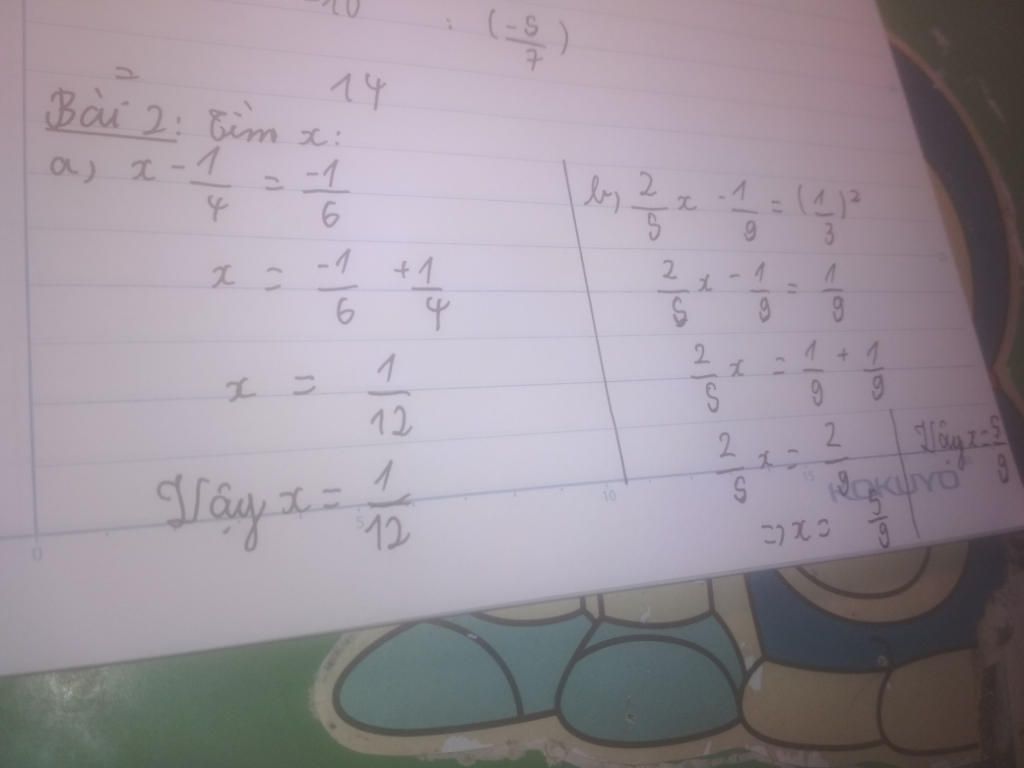 -10
: (-5/7)
= 14
Bài 2: Tìm x:
a, x - 1/4 = -1/6
x = -1/6 + 1/4
x = 1/12
Vậy x = 1/12
b, 2/5 x - 1/9 = (1/3)²
2/5 x - 1/9 = 1/9
2/5 x = 1/9 + 1/9
2/5 x = 2/9
=> x = 5/9
Vậy x = 5/9
KOKUYO
0 5 10 15